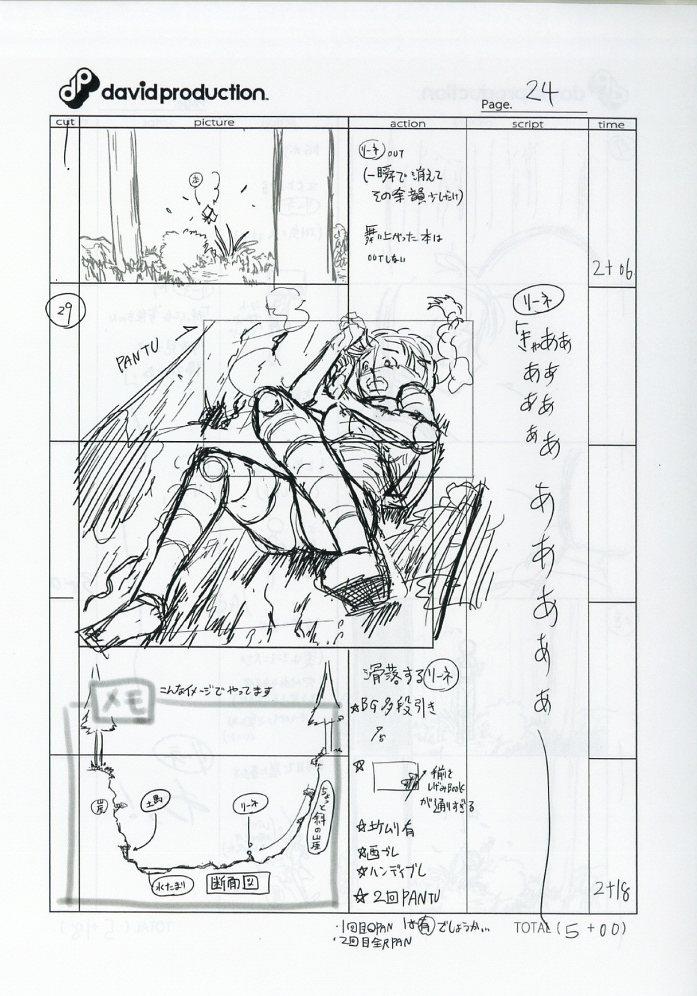 davidproduction.
Page. 24
cut
picture
action
script
time
本
リーネ OUT
(一瞬で消えて
その余韻少しだけ)
舞い上がった本は
OUTしない
2+06
29
PANTU
リーネ
きゃあぁ
ああ
ああ
ああ
あ
あ
あ
あ
あ
メモ
こんなイメージでやってます
崖
土馬
リーネ
ちょっと斜の山崖
水たまり
断面図
滑落するリーネ
☆BG多段引き
☆
手前を
しげみBOOK
が通りすぎる
☆土ケムリ有
☆画ブレ
☆ハンディブレ
☆2回PANTU
2+18
・1回目QPAN は有でしょうか..
・2回目全R PAN
TOTAL (5+00)